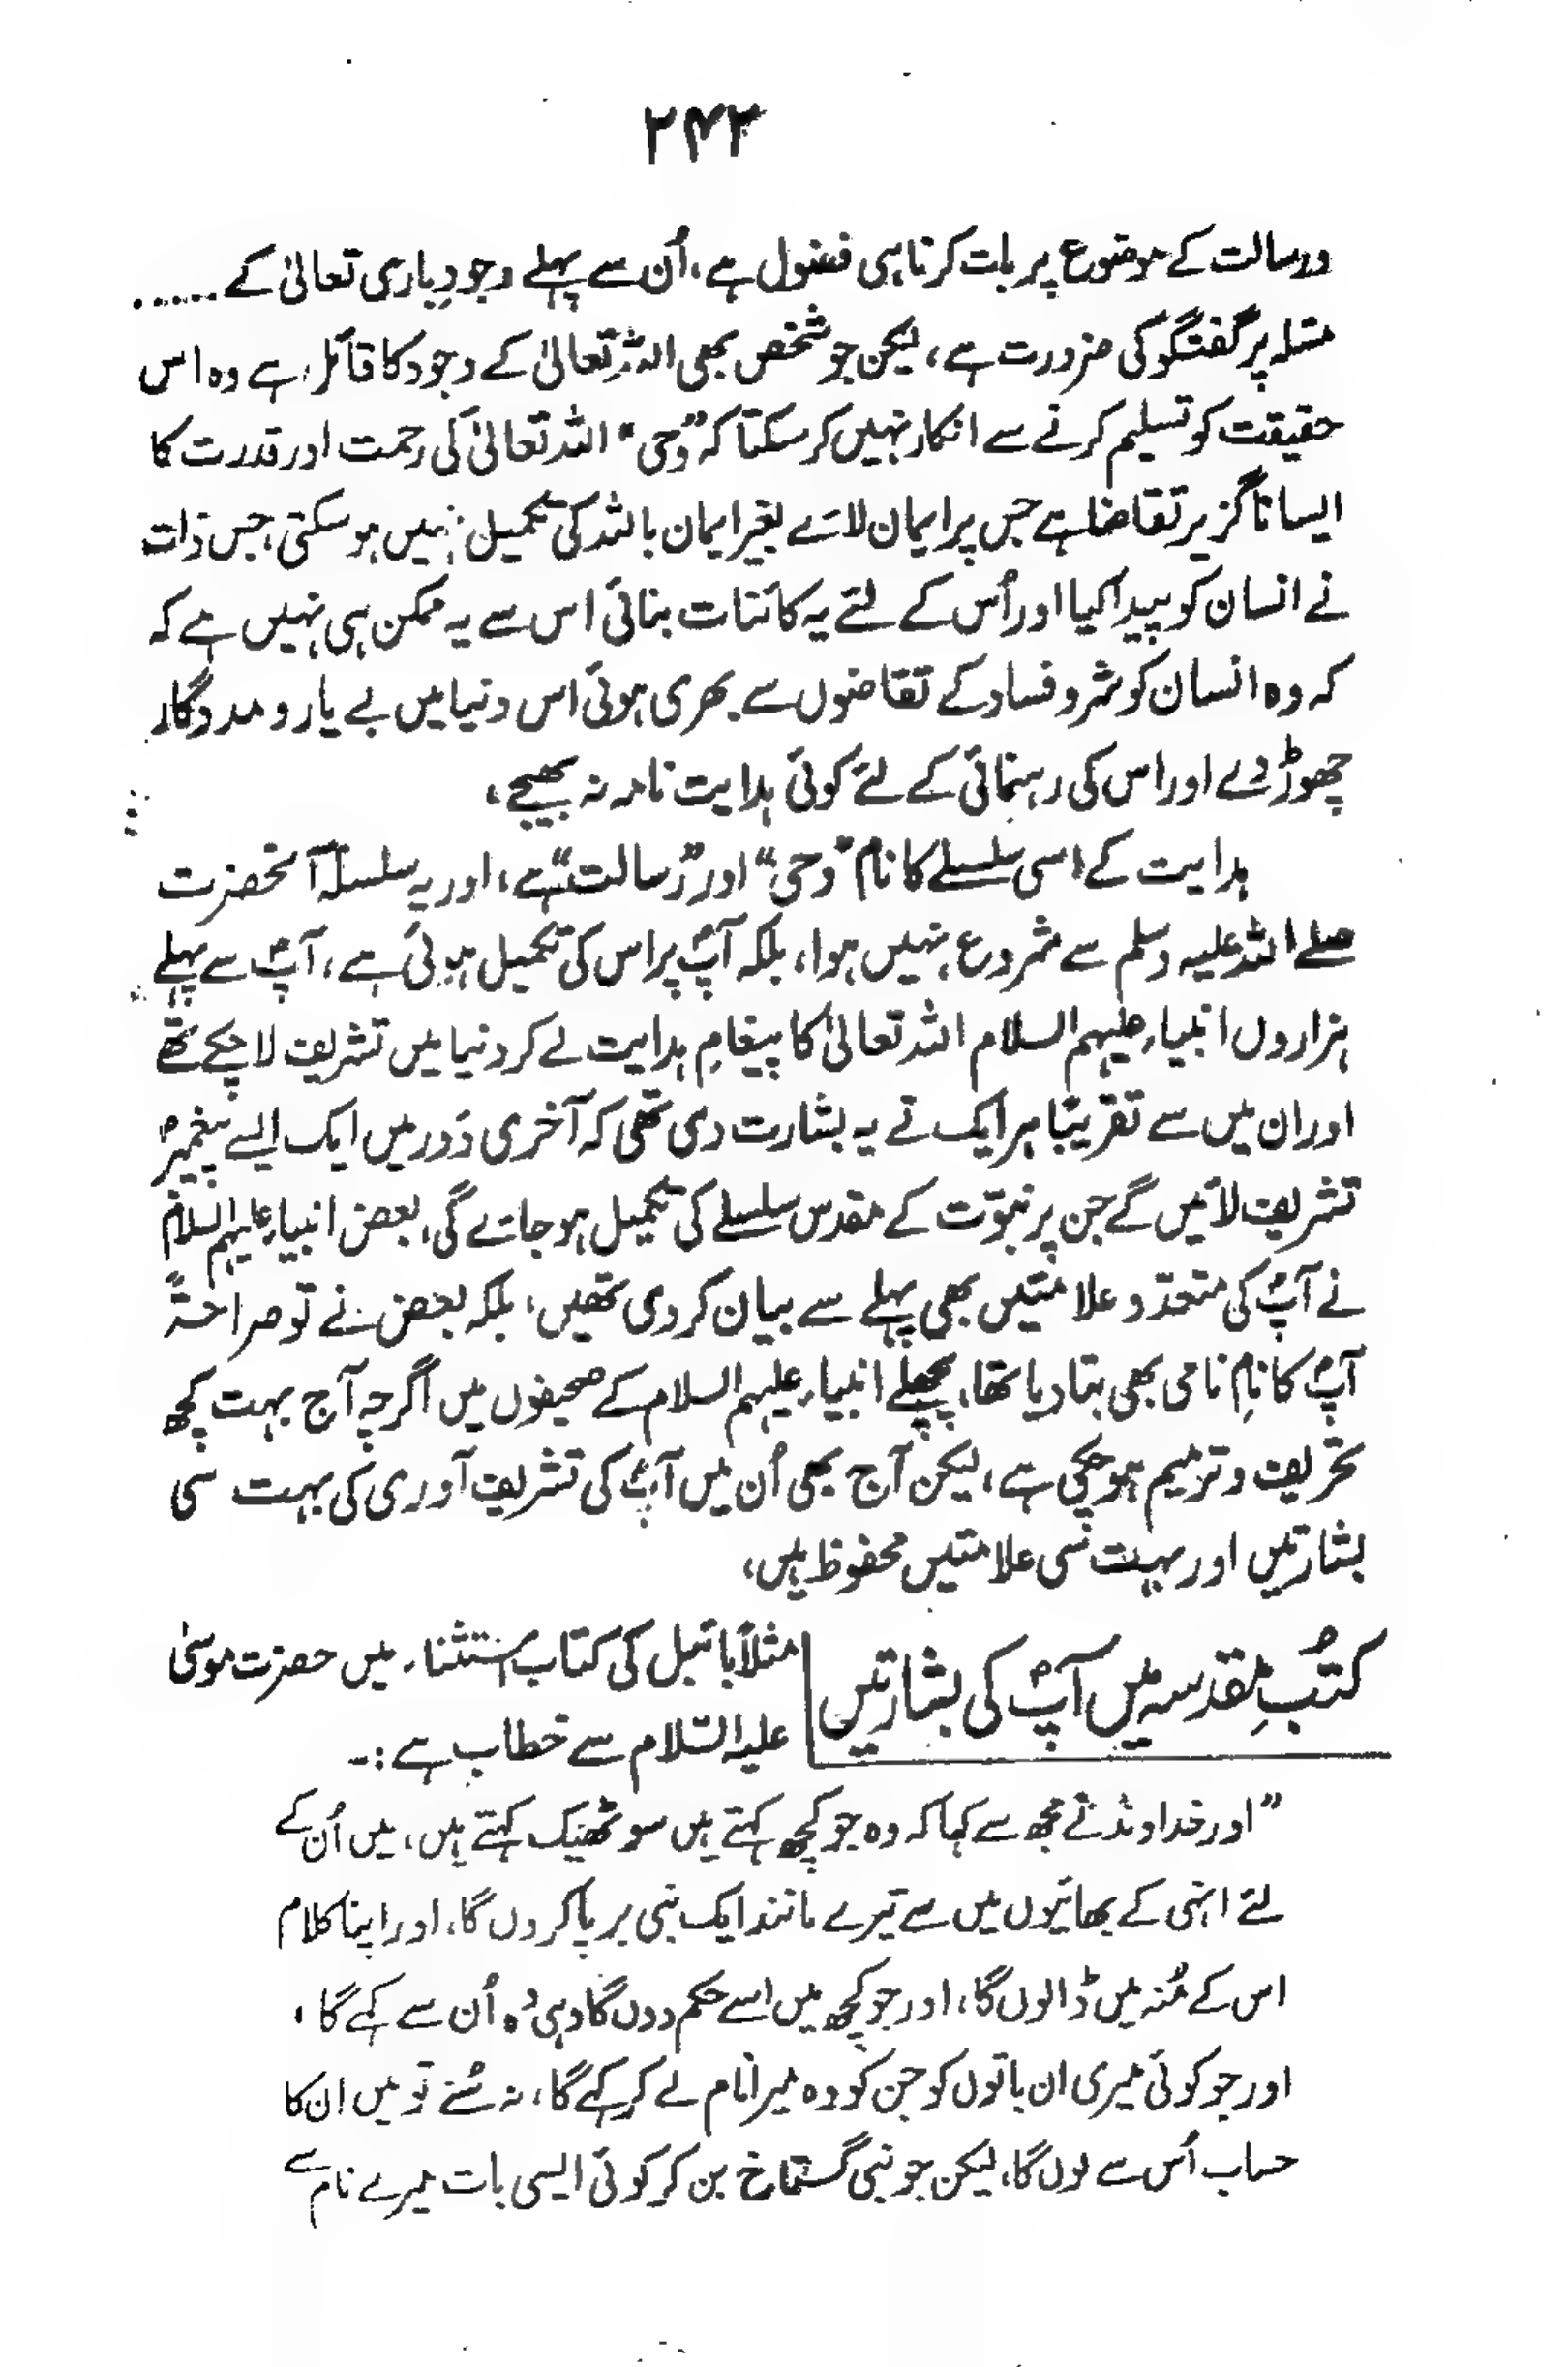 ۲۴۲
ورسالت کے موضوع پر بات کرنا ہی فضول ہے، اُن سے پہلے وجودِ باری تعالیٰ کے ......
مسئلہ پر گفتگو کی ضرورت ہے، لیکن جو شخص بھی اللہ تعالیٰ کے وجود کا قائل ہے وہ اس
حقیقت کو تسلیم کرنے سے انکار نہیں کر سکتا کہ "وحی" اللہ تعالیٰ کی رحمت اور قدرت کا
ایسا ناگزیر تقاضا ہے جس پر ایمان لائے بغیر ایمان باللہ کی تکمیل نہیں ہو سکتی، جس ذات
نے انسان کو پیدا کیا اور اُس کے لئے یہ کائنات بنائی اس سے یہ ممکن ہی نہیں ہے کہ
کہ وہ انسان کو شر و فساد کے تقاضوں سے بھری ہوئی اس دنیا میں بے یار و مددگار
چھوڑ دے اور اس کی رہنمائی کے لئے کوئی ہدایت نامہ نہ بھیجے،
ہدایت کے اسی سلسلے کا نام "وحی" اور "رسالت" ہے، اور یہ سلسلہ آنحضرت
صلے اللہ علیہ وسلم سے شروع نہیں ہوا، بلکہ آپؐ پر اس کی تکمیل ہوئی ہے، آپؐ سے پہلے
ہزاروں انبیاء علیہم السلام اللہ تعالیٰ کا پیغامِ ہدایت لے کر دنیا میں تشریف لا چکے تھے
اور ان میں سے تقریبًا ہر ایک نے یہ بشارت دی تھی کہ آخری دَور میں ایک ایسے پیغمبرؐ
تشریف لائیں گے جن پر نبوّت کے مقدس سلسلے کی تکمیل ہو جائے گی، بعض انبیاء علیہم السلام
نے آپؐ کی متعدّد علامتیں بھی پہلے سے بیان کر دی تھیں، بلکہ بعض نے تو صراحۃً
آپؐ کا نامِ نامی بھی بتا دیا تھا، پچھلے انبیاء علیہم السلام کے صحیفوں میں اگرچہ آج بہت کچھ
تحریف و ترمیم ہو چکی ہے، لیکن آج بھی اُن میں آپؐ کی تشریف آوری کی بہت سی
بشارتیں اور بہت سی علامتیں محفوظ ہیں،
کتُبِ مقدسہ میں آپؐ کی بشارتیں
مثلاً بائبل کی کتاب استثناء میں حضرت موسیٰ
علیہ السّلام سے خطاب ہے :-
"اور خداوند نے مجھ سے کہا کہ وہ جو کچھ کہتے ہیں سو ٹھیک کہتے ہیں، میں اُن کے
لئے انہی کے بھائیوں میں سے تیرے مانند ایک نبی برپا کروں گا، اور اپنا کلام
اس کے مُنہ میں ڈالوں گا، اور جو کچھ میں اسے حکم دوں گا وہی وُہ اُن سے کہے گا،
اور جو کوئی میری ان باتوں کو جن کو وہ میرا نام لے کر کہے گا، نہ سُنے تو میں ان کا
حساب اُس سے لوں گا، لیکن جو نبی گستاخ بن کر کوئی ایسی بات میرے نام سے